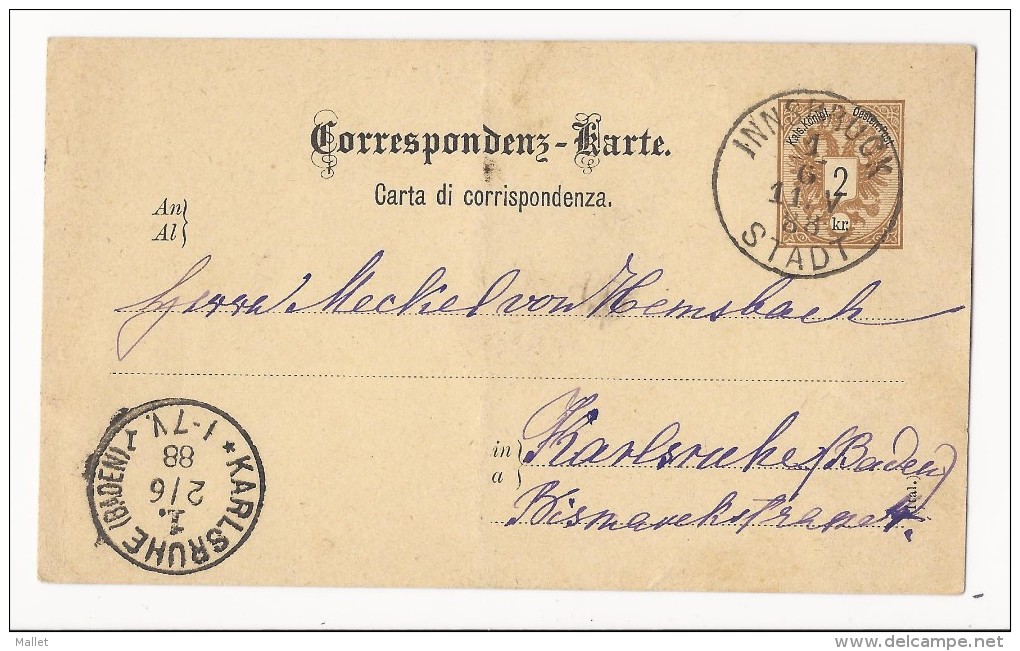 Correspondenz-Karte.
Carta di corrispondenza.
Kais. Königl. Oesterr. Post
2
kr.
INNSBRUCK
1
6
11.V
88
STADT
An
Al
Herrn Meckel von Hemsbach
in
a
Karlsruhe (Baden)
Bismarckstrasse
(Ital.)
KARLSRUHE (BADEN)
1.
2/6
88
1-7V.
Mallet
delcampe.net